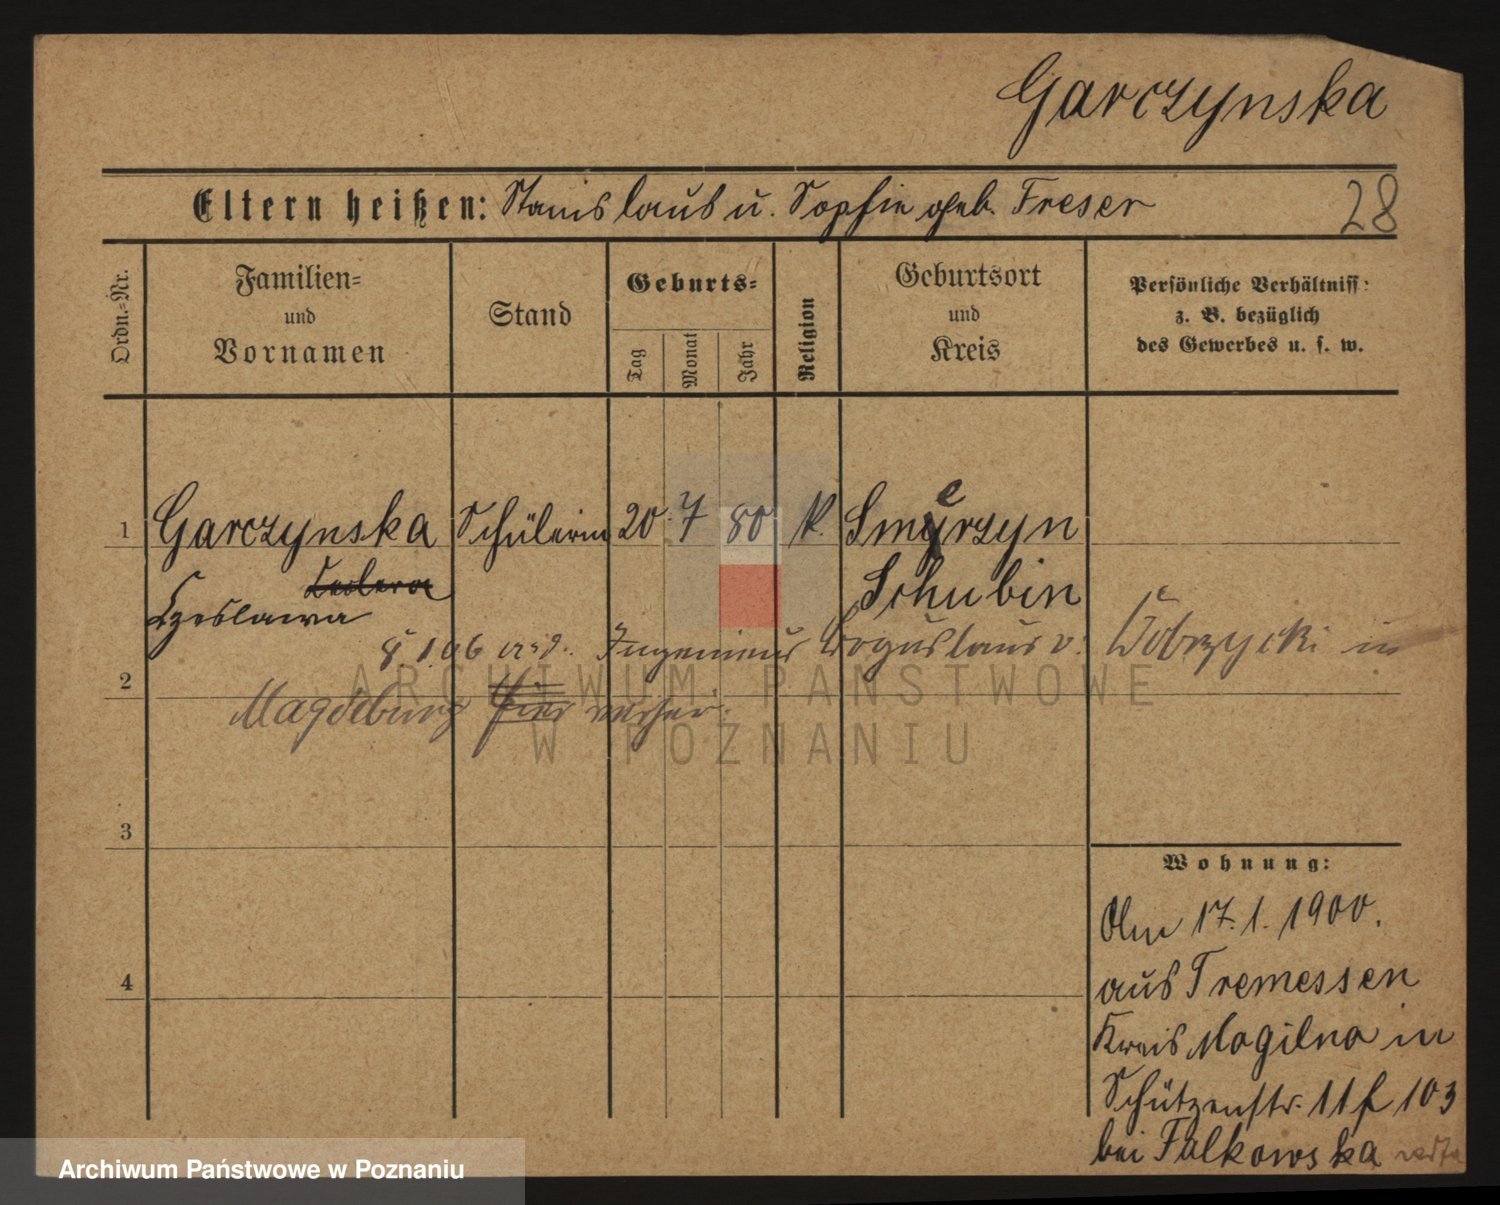 Garczynska
Eltern heißen: Stanislaus u. Sophie geb. Freser
28
Ordn.-Nr.
Familien-
und
Vornamen
Stand
Geburts-
Tag
Monat
Jahr
Religion
Geburtsort
und
Kreis
Persönliche Verhältniss:
z. B. bezüglich
des Gewerbes u. s. w.
1 Garczynska Schülerin 20. 7 80 k. Smerzyn
Czeslawa Schubin
8.1.06 Ingenieur Boguslaus v. in
2
Magdeburg hier verheir.
ARCHIWUM PAŃSTWOWE
W POZNANIU
3
4
Wohnung:
Am 17.1.1900.
aus Tremessen
Kreis Mogilno in
Schützenstr. 11 f 103
bei Falkowska
Archiwum Państwowe w Poznaniu